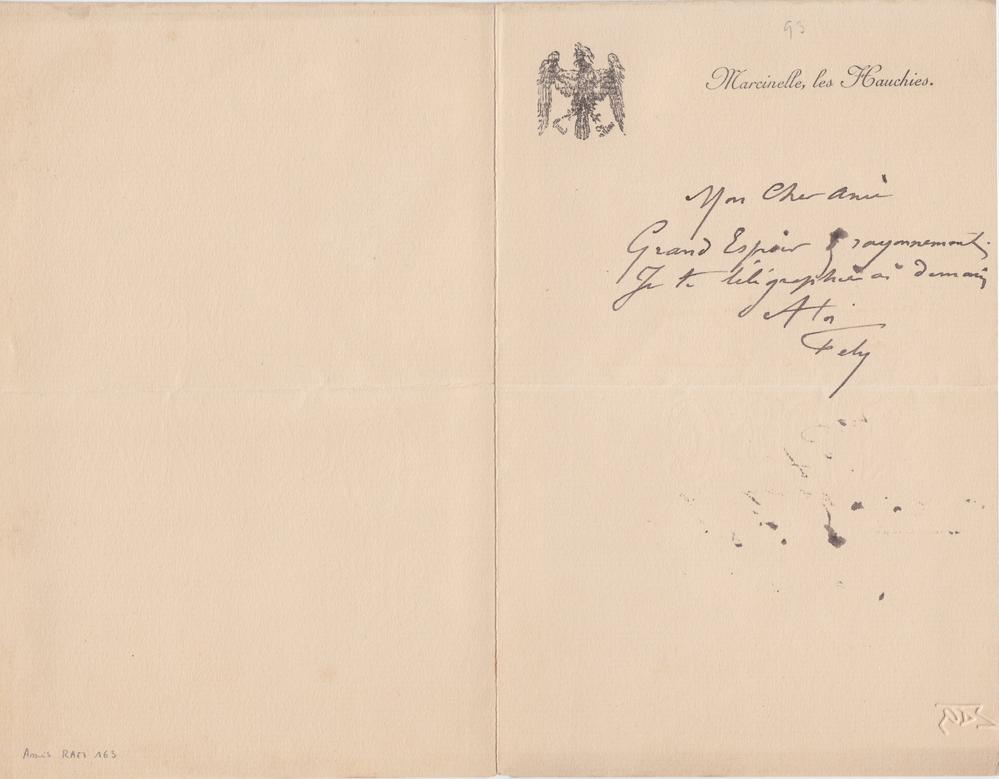 93
Marcinelle, les Hauchies.
Mon Cher ami
Grand Espoir & rayonnement.
Je te télégraphierai demain
A toi
Fely
Amis RAM 163